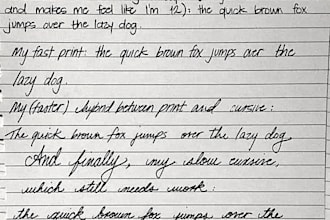 and makes me feel like I'm 12): the quick brown fox
jumps over the lazy dog.
My fast print: the quick brown fox jumps over the
lazy dog.
My (faster) hybrid between print and cursive:
The quick brown fox jumps over the lazy dog
And finally, my slow cursive,
which still needs work:
the quick brown fox jumps over the